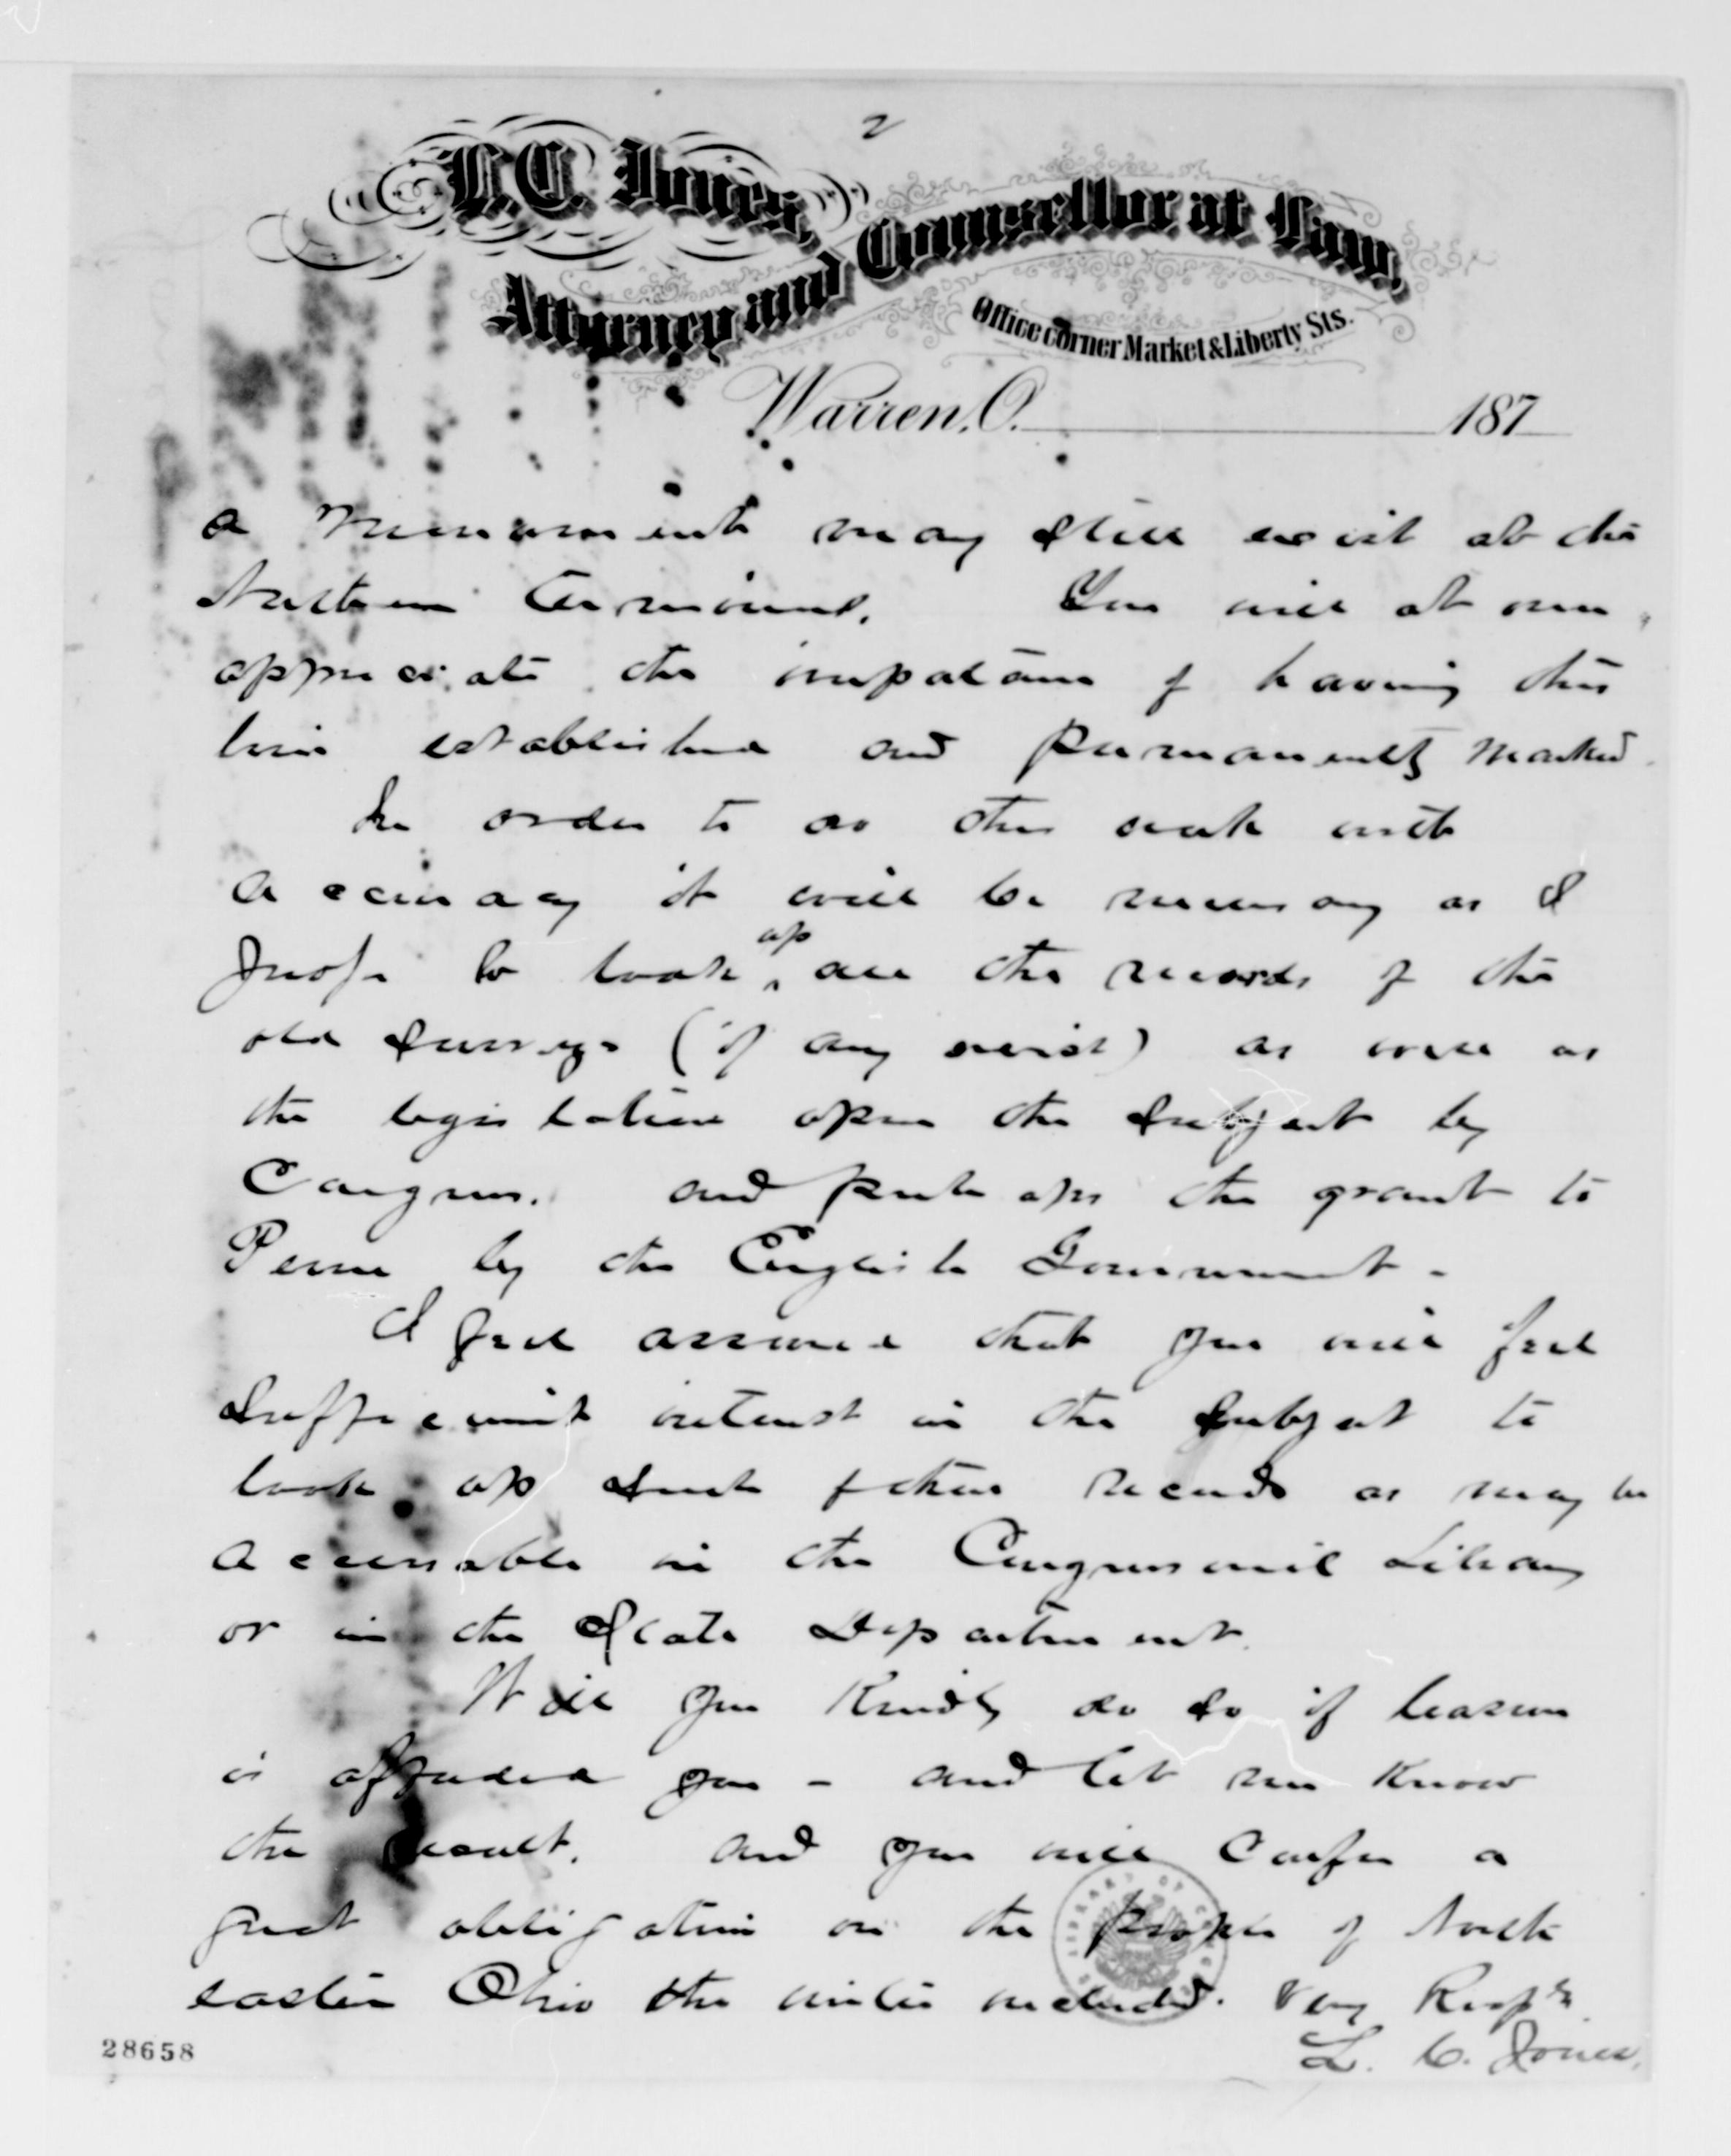 2
L.C. Jones,
Attorney and Counsellor at Law,
Office corner Market & Liberty Sts.
Warren, O. 187
a monument may still exist at the
Northern terminus. You will at once
appreciate the importance of having this
line established and permanently marked.
In order to do this work with
accuracy it will be necessary as I
to look up all the records of the
old surveys (if any exist) as well as
the legislation upon the subject by
Congress. and perhaps the grant to
Penn by the English Government.
I feel assured that you will feel
sufficient interest in the subject to
look up such of these records as may be
accessable in the Congressional Library
or in the State Department.
Will you kindly do so if leasure
is afforded you - and let me know
the result. and you will confer a
great obligation on the people of North
eastern Ohio the writer included. Very Respty
L. C. Jones,
LIBRARY OF CONGRESS
28658